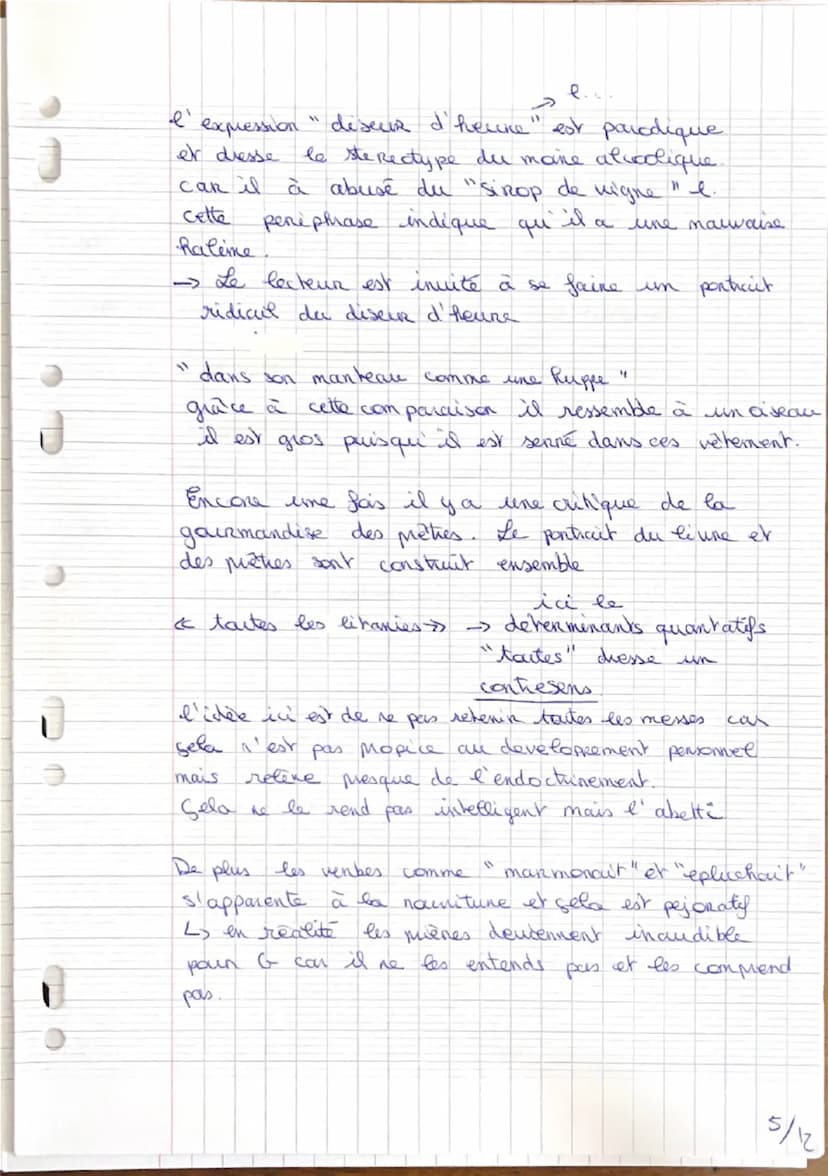 → l...
l'expression "diseur d'heure" est parodique
et dresse le stereotype du moine alcoolique
car il à abusé du "sirop de vigne" l.
cette periphrase indique qu'il a une mauvaise
haleine.
→ Le lecteur est invité à se faire un portrait
ridicul du diseur d'heure
"dans son manteau comme une huppe"
grâce à cette comparaison il ressemble à un oiseau
il est gros puisqu'il est serré dans ces vêtement.
Encore une fois il y a une critique de la
gourmandise des prêtres. Le portrait du livre et
des prêtres sont construit ensemble
ici le
« toutes les litanies » → déterminants quantatifs
"toutes" dresse un
contresens
l'idée ici est de ne pas retenir toutes les messes car
cela n'est pas propice au developpement personnel
mais relève presque de l'endoctrinement.
Cela ne le rend pas intelligent mais l'abetti
De plus les verbes comme "marmonait" et "epluchait"
s'apparente à la nourriture et cela est pejoratif
↳ en réalité les prières deviennent inaudible
pour G car il ne les entends pas et les comprend
pas.
5/12